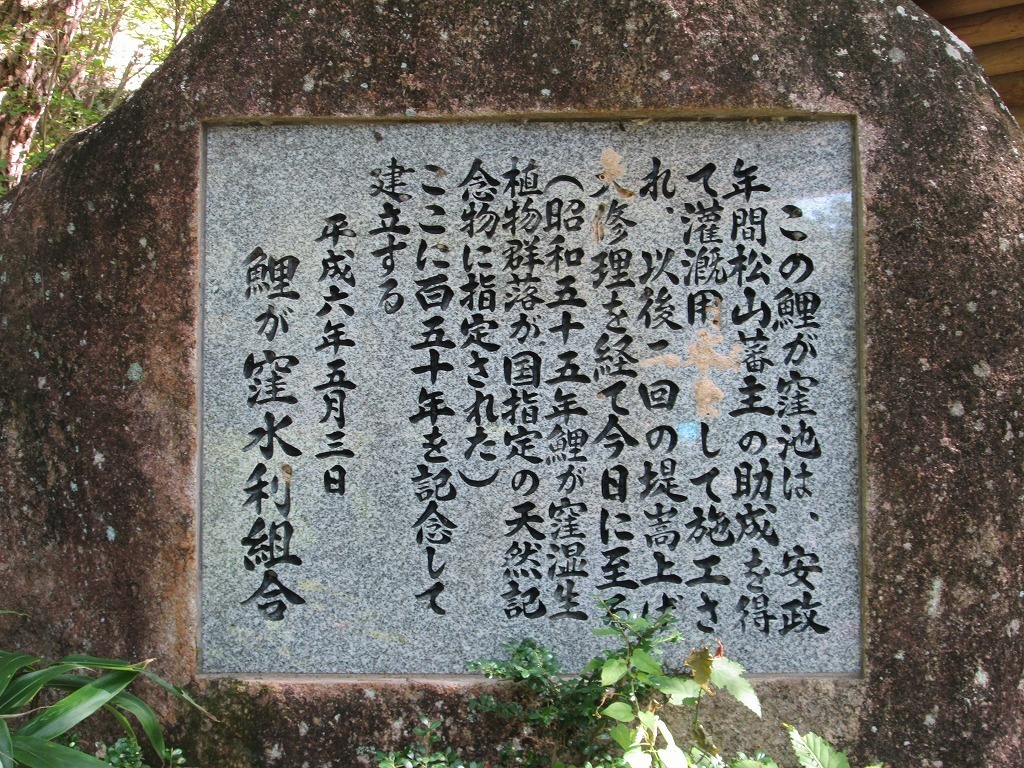 この鯉が窪池は、安政
年間松山蕃主の助成を得
て灌漑用水として施工さ
れ、以後二回の堤嵩上げ
大修理を経て今日に至る
（昭和五十五年鯉が窪湿生
植物群落が国指定の天然記
念物に指定された）
ここに百五十年を記念して
建立する
平成六年五月三日
鯉が窪水利組合